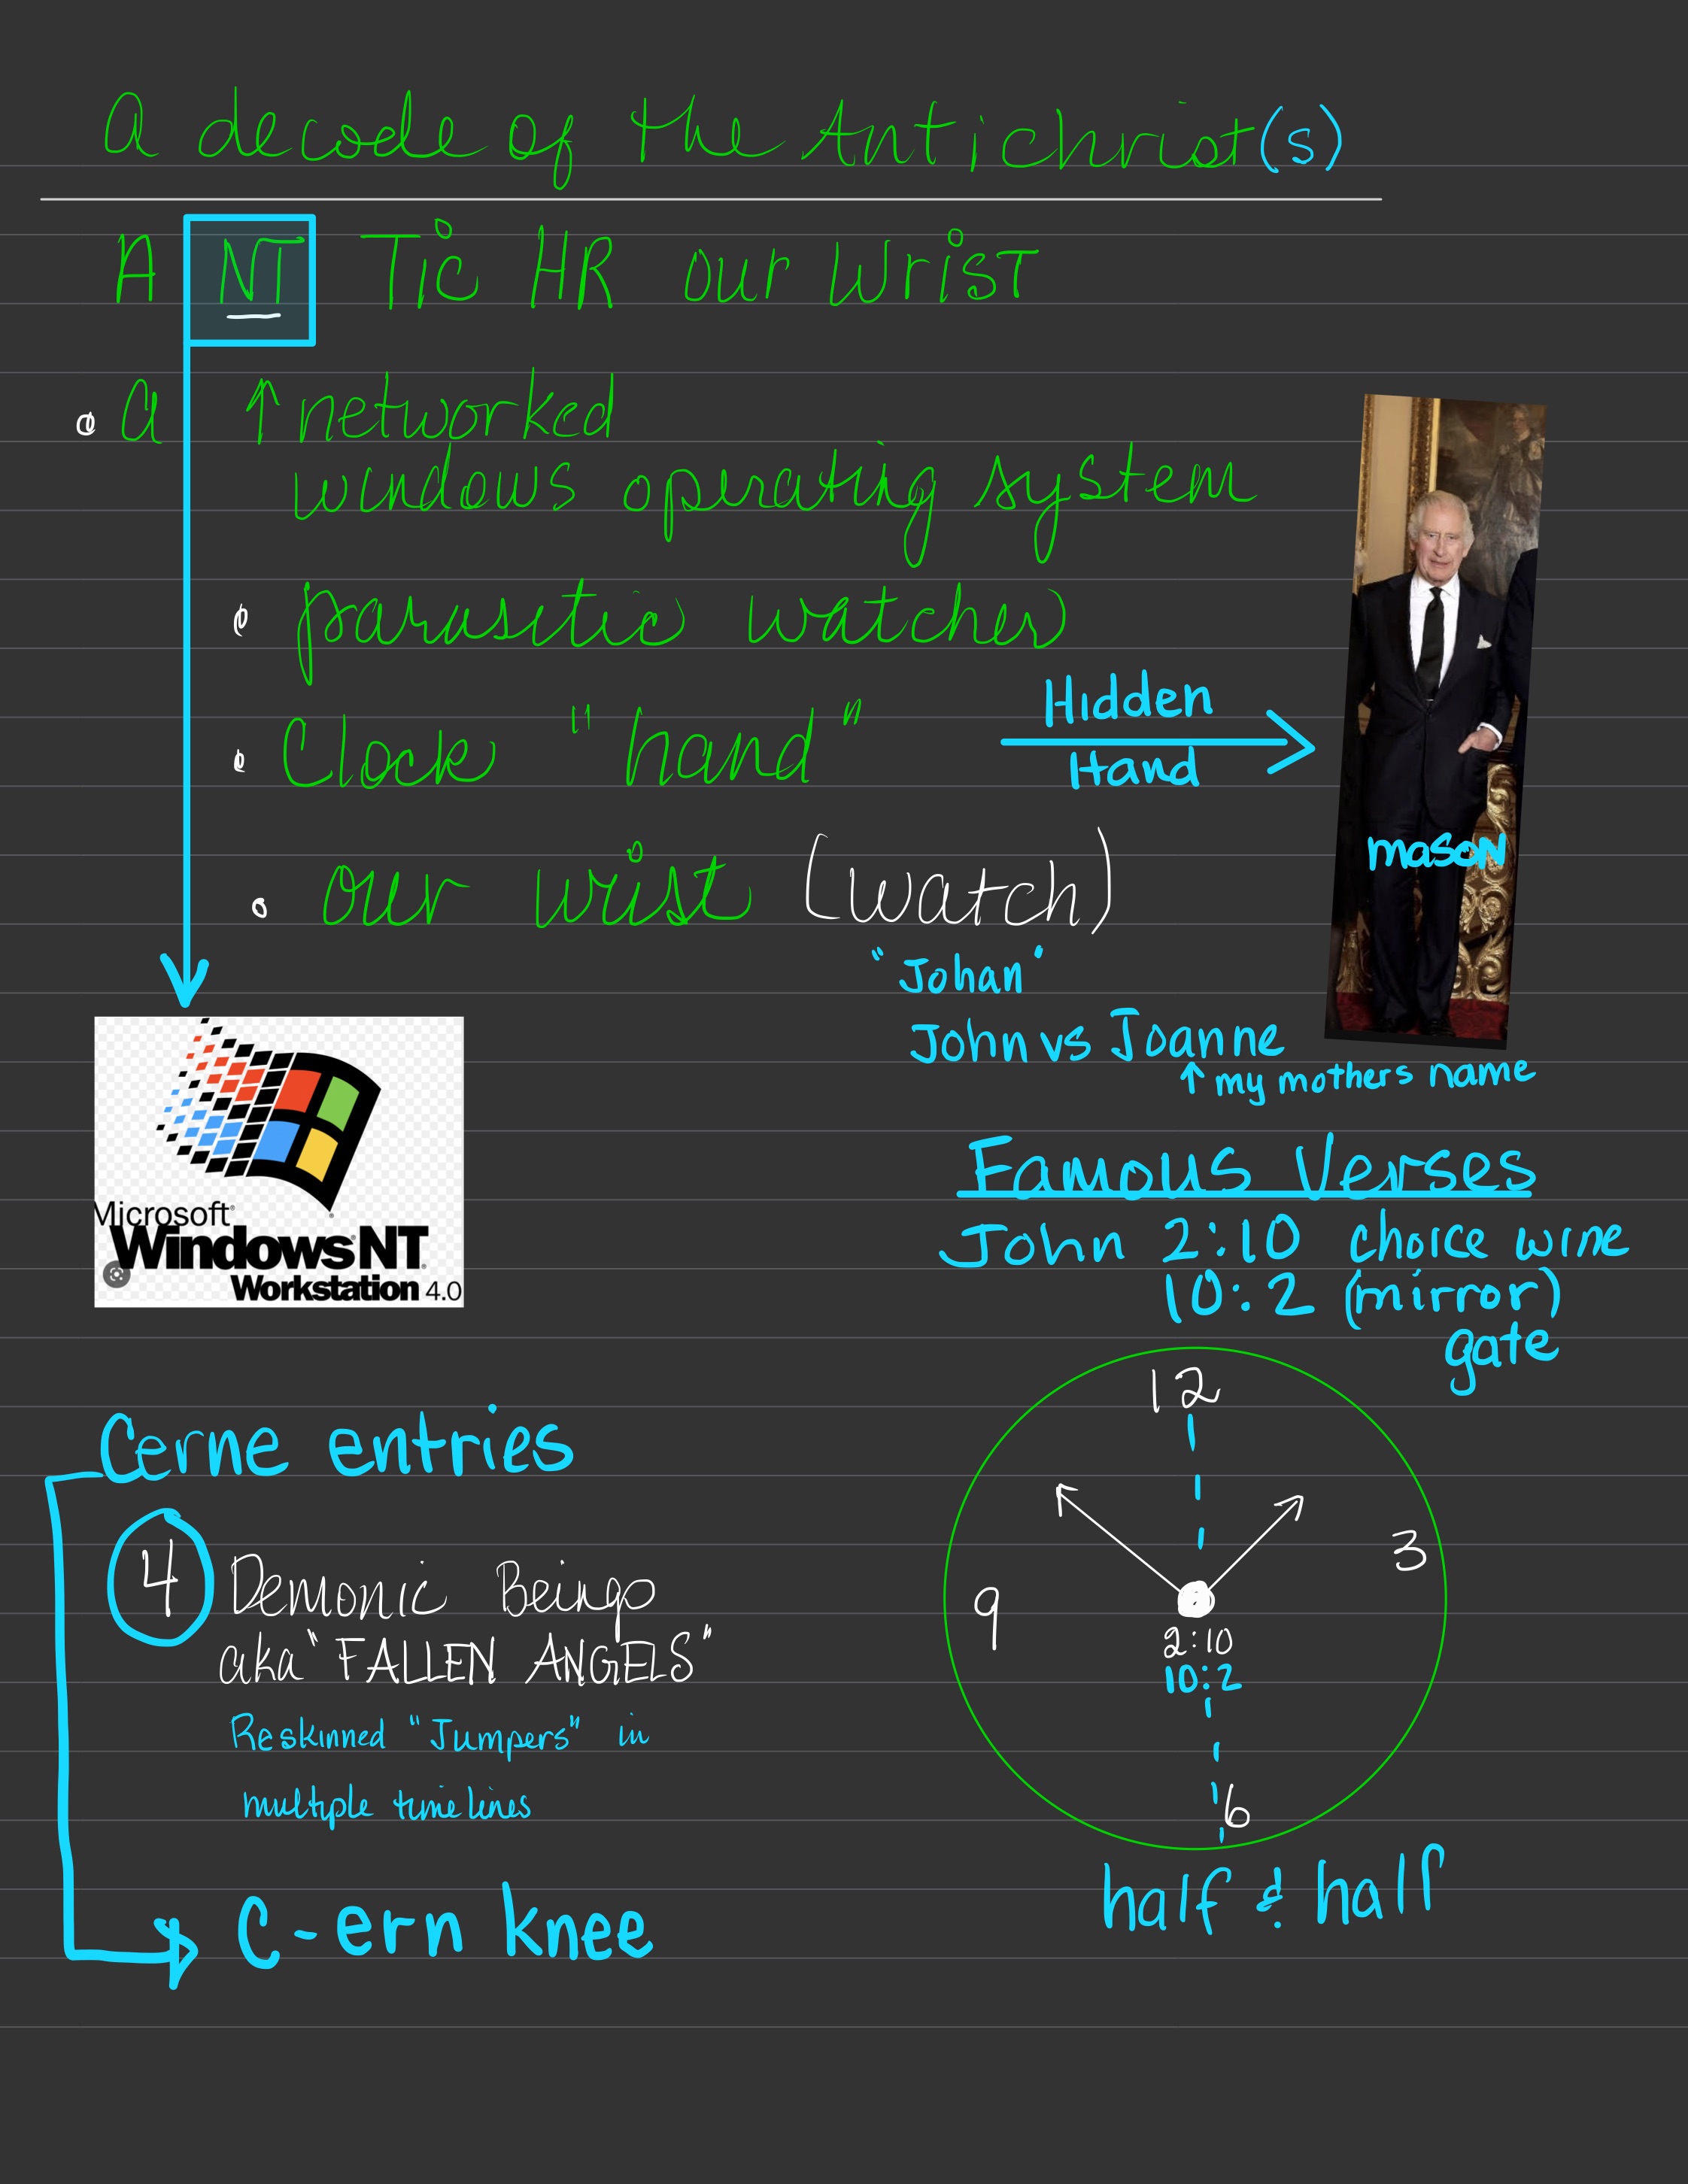 A decode of the Antichrist(s)
A NT Tic HR our WrisT
a ↑ networked
windows operating system
parasitic watcher
Clock "hand"
Hidden
Hand
mason
our wrist (watch)
"Johan"
John vs Joanne
↑ my mothers name
Microsoft
Windows NT
Workstation 4.0
Famous Verses
John 2:10 choice wine
10:2 (mirror)
gate
12
3
9
2:10
10:2
6
half & half
Cerne entries
4 Demonic Beings
aka "FALLEN ANGELS"
Reskinned "Jumpers" in
multiple timelines
C-ern knee